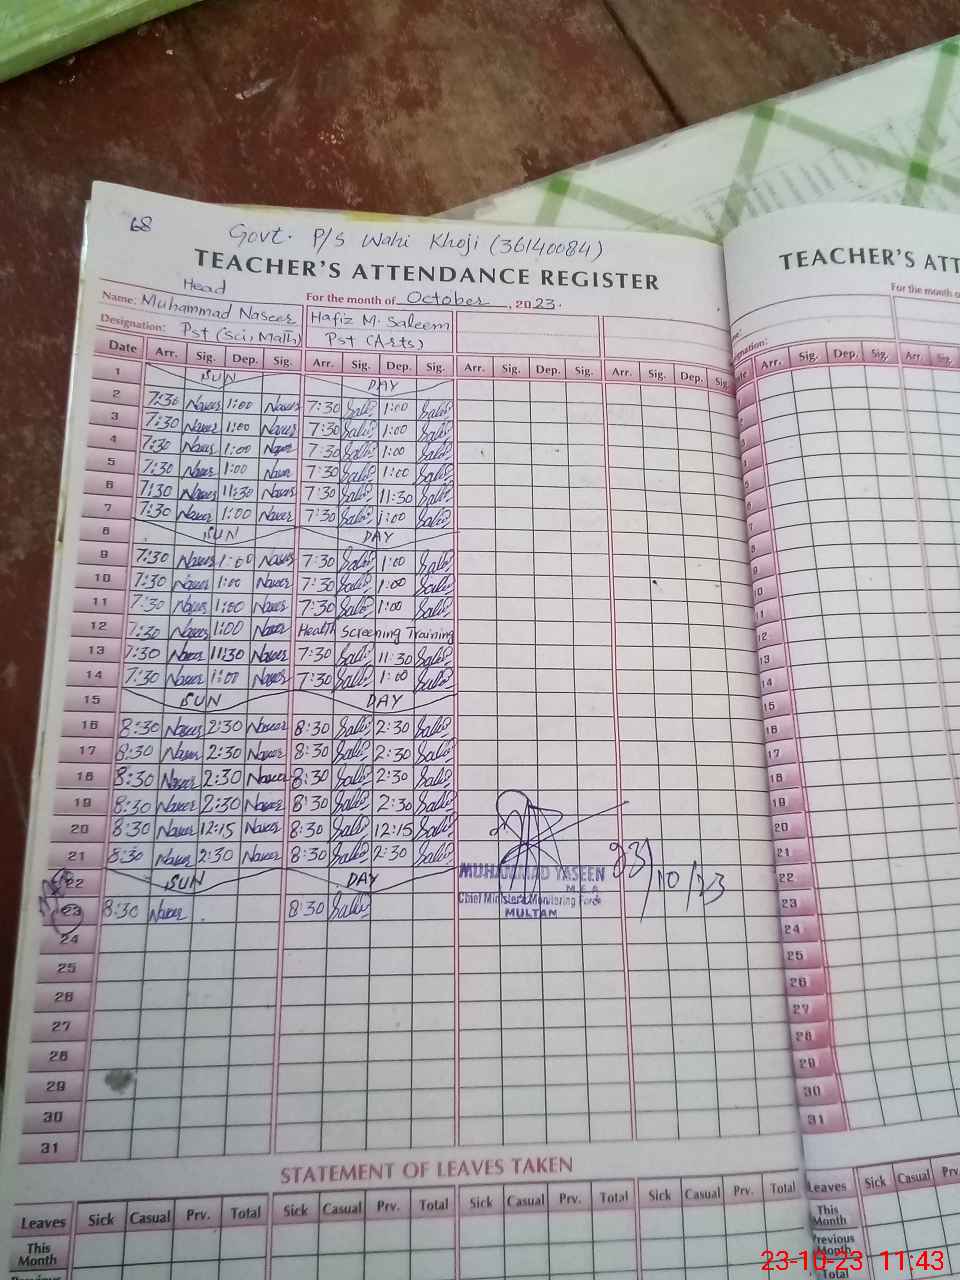 68
Govt. P/S Wahi Khoji (36140084)
TEACHER'S ATTENDANCE REGISTER
TEACHER'S ATT
Head
Name: Muhammad Naseer For the month of October, 2023.
For the month o
Hafiz M. Saleem
Designation: Pst (Sci, Math) Pst (Arts)
Date Arr. Sig. Dep. Sig. Arr. Sig. Dep. Sig. Arr. Sig. Dep. Sig. Arr. Sig. Dep. Sig.
Arr. Sig. Dep. Sig. Arr. Sig.
1 SUN DAY
2 7:30 Naseer 1:00 Naseer 7:30 Salee 1:00 Salee
3 7:30 Naseer 1:00 Naseer 7:30 Salee 1:00 Salee
4 7:30 Naseer 1:00 Naseer 7:30 Salee 1:00 Salee
5 7:30 Naseer 1:00 Naseer 7:30 Salee 1:00 Salee
6 7:30 Naseer 11:30 Naseer 7:30 Salee 11:30 Salee
7 7:30 Naseer 1:00 Naseer 7:30 Salee 1:00 Salee
8 SUN DAY
9 7:30 Naseer 1:00 Naseer 7:30 Salee 1:00 Salee
10 7:30 Naseer 1:00 Naseer 7:30 Salee 1:00 Salee
11 7:30 Naseer 1:00 Naseer 7:30 Salee 1:00 Salee
12 7:30 Naseer 1:00 Naseer Health Screening Training
13 7:30 Naseer 11:30 Naseer 7:30 Salee 11:30 Salee
14 7:30 Naseer 1:00 Naseer 7:30 Salee 1:00 Salee
15 SUN DAY
16 8:30 Naseer 2:30 Naseer 8:30 Salee 2:30 Salee
17 8:30 Naseer 2:30 Naseer 8:30 Salee 2:30 Salee
18 8:30 Naseer 2:30 Naseer 8:30 Salee 2:30 Salee
19 8:30 Naseer 2:30 Naseer 8:30 Salee 2:30 Salee
20 8:30 Naseer 12:15 Naseer 8:30 Salee 12:15 Salee
21 8:30 Naseer 2:30 Naseer 8:30 Salee 2:30 Salee
22 SUN DAY
23 8:30 Naseer 8:30 Salee
MUHAMMAD YASEEN
M.E.A
Chief Minister's Monitoring Force
MULTAN
23/10/23
24
25
26
27
28
29
30
31
STATEMENT OF LEAVES TAKEN
Leaves Sick Casual Prv. Total Sick Casual Prv. Total Sick Casual Prv. Total Sick Casual Prv. Total
Leaves Sick Casual Prv.
This Month
This Month
Previous Month
Total
23-10-23 11:43